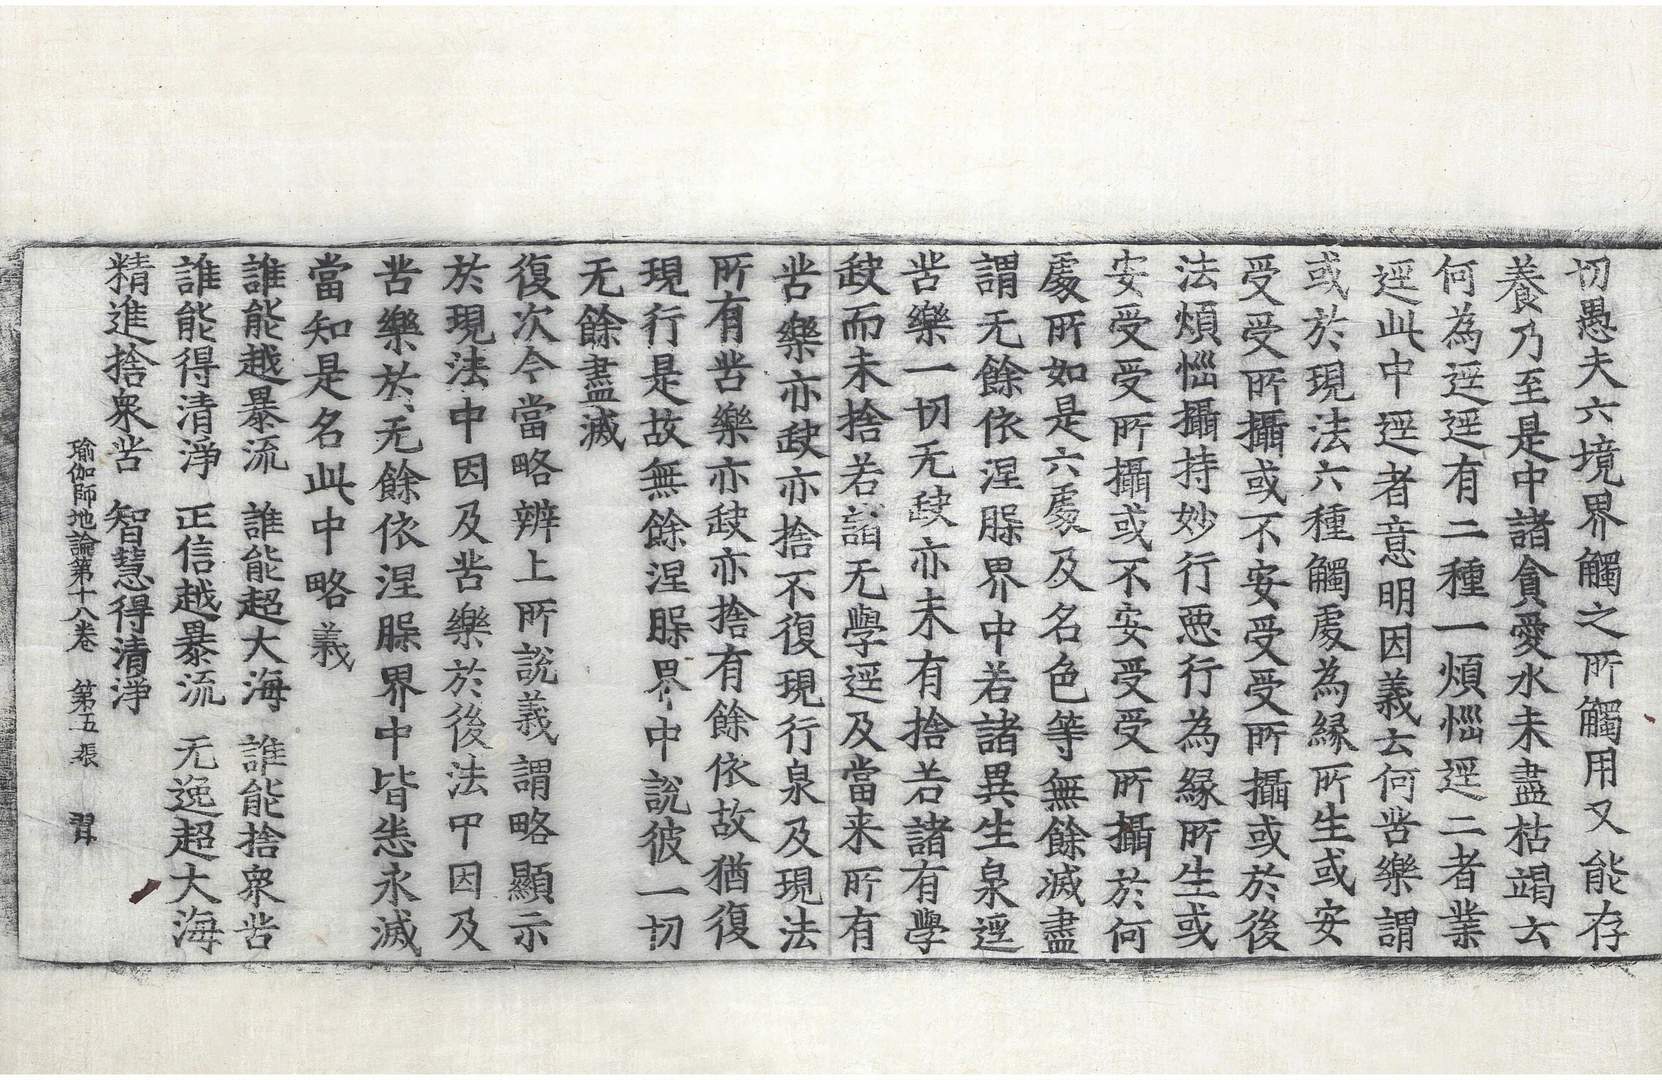 切愚夫六境界觸之所觸用又能存
養乃至是中諸貪愛水未盡枯竭云
何為逕逕有二種一煩惱逕二者業
逕此中逕者意明因義云何苦樂謂
或於現法六種觸處為緣所生或安
受受所攝或不安受受所攝或於後
法煩惱攝持妙行惡行為緣所生或
安受受所攝或不安受受所攝於何
處所如是六處及名色等無餘滅盡
謂无餘依涅槃界中若諸異生泉逕
苦樂一切无缺亦未有捨若諸有學
缺而未捨若諸无學逕及當来所有
苦樂亦缺亦捨不復現行泉及現法
所有苦樂亦缺亦捨有餘依故猶復
現行是故無餘涅槃界中說彼一切
无餘盡滅
復次今當略辨上所說義謂略顯示
於現法中因及苦樂於後法甲因及
苦樂於无餘依涅槃界中皆悉永滅
當知是名此中略義
誰能越暴流 誰能超大海 誰能捨衆苦
誰能得清淨 正信越暴流 无逸超大海
精進捨衆苦 智慧得清淨
瑜伽師地論第十八卷 第五張 習